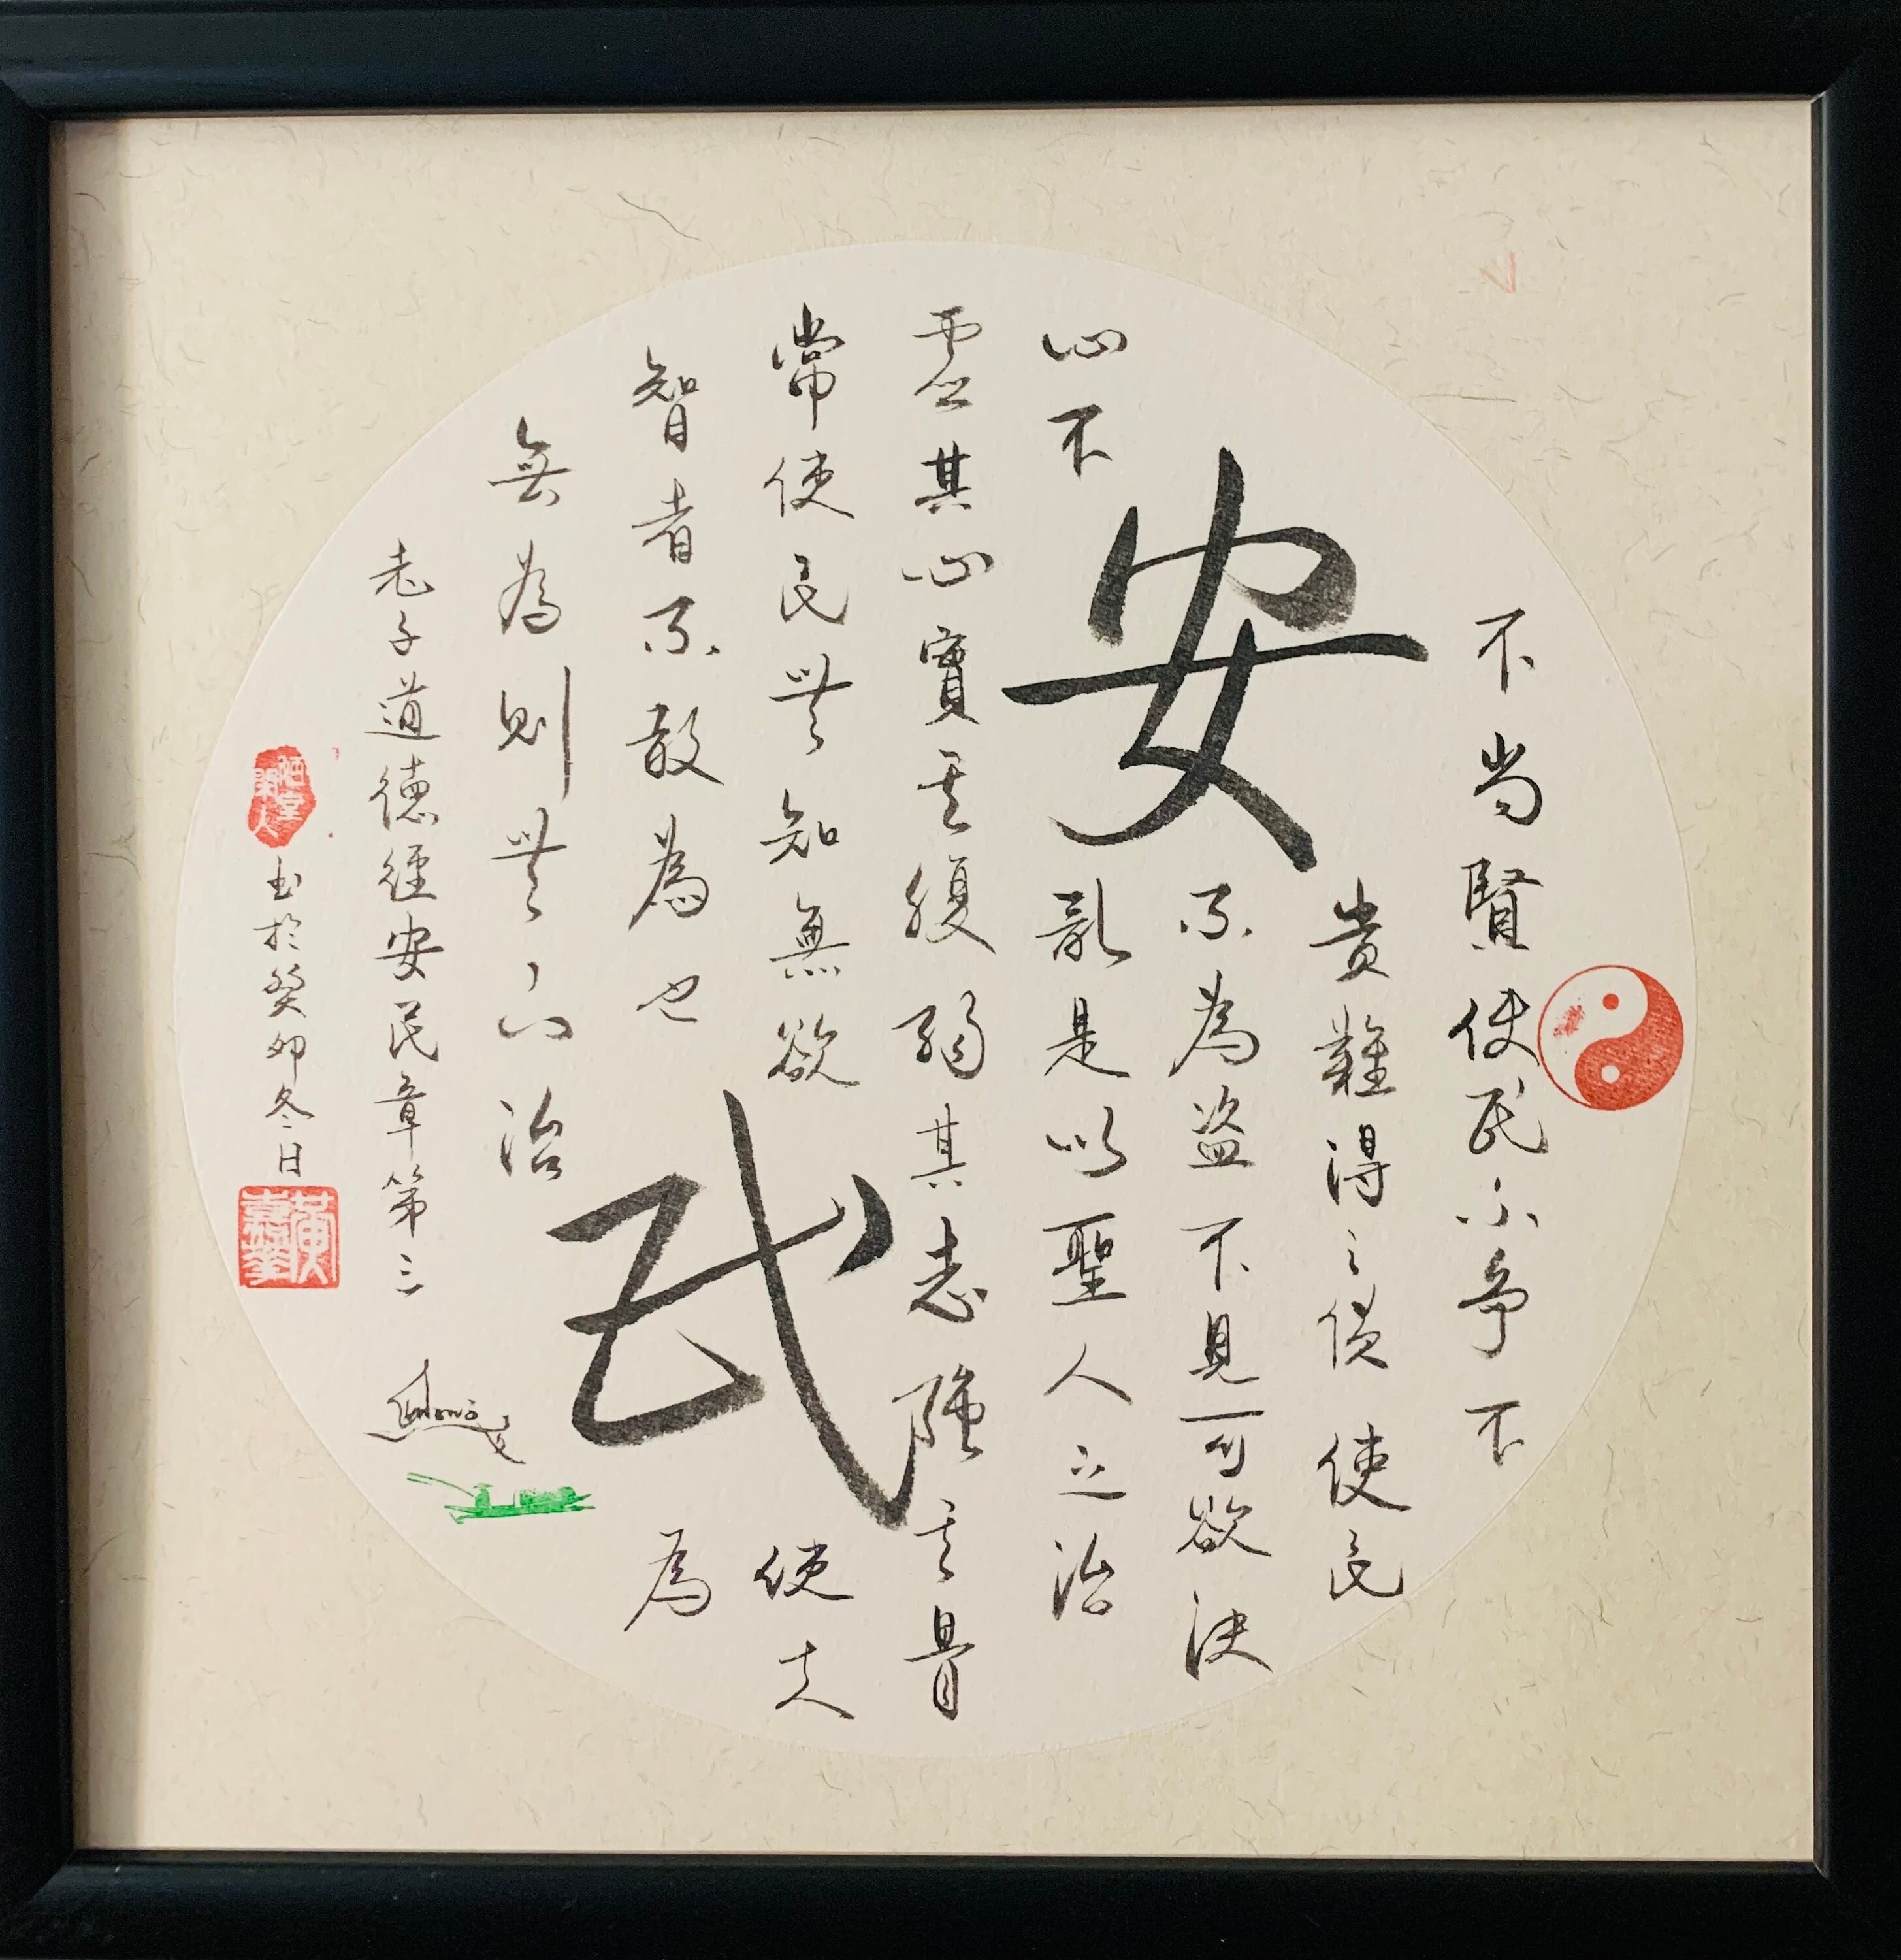 安民
不尚賢使民不爭不
貴難得之貨使民
不為盜不見可欲使
心不亂是以聖人之治
虛其心實其腹弱其志強其骨
常使民無知無欲使夫
智者不敢為也為
無為則無不治
老子道德經安民章第三
書於癸卯冬日